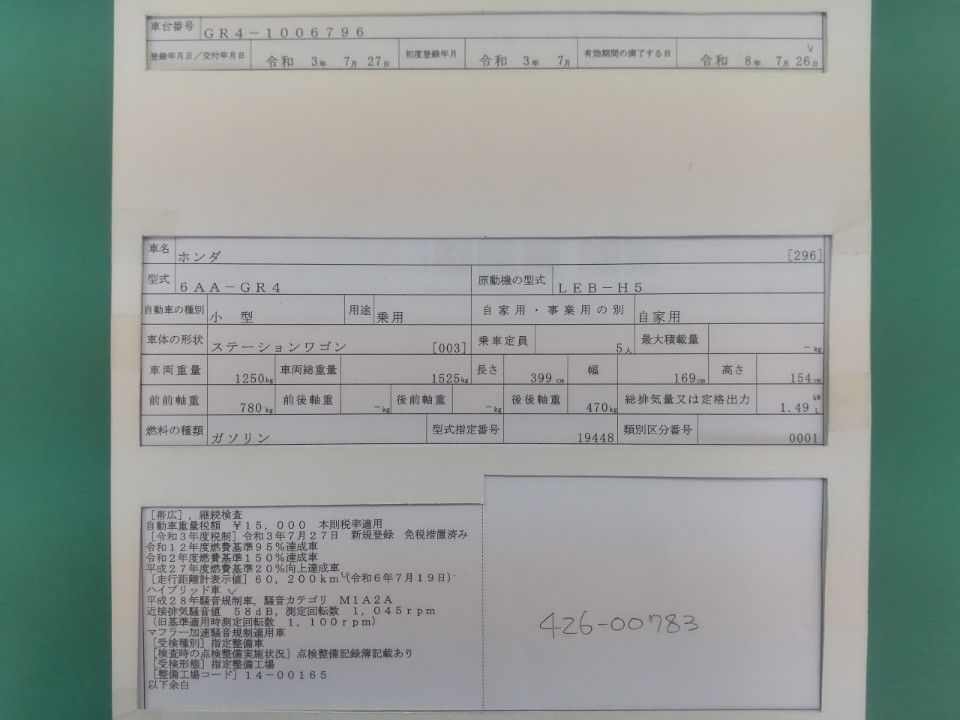 車台番号 GR4-1006796
登録年月日/交付年月日 令和 3年 7月 27日 初度登録年月 令和 3年 7月 有効期間の満了する日 令和 8年 7月 26日
車名 ホンダ [296]
型式 6AA-GR4 原動機の型式 LEB-H5
自動車の種別 小 型 用途 乗用 自家用・事業用の別 自家用
車体の形状 ステーションワゴン [003] 乗車定員 5人 最大積載量 -kg
車両重量 1250kg 車両総重量 1525kg 長さ 399cm 幅 169cm 高さ 154cm
前前軸重 780kg 前後軸重 -kg 後前軸重 -kg 後後軸重 470kg 総排気量又は定格出力 1.49 kW L
燃料の種類 ガソリン 型式指定番号 19448 類別区分番号 0001
[帯広],継続検査
自動車重量税額 ¥15,000 本則税率適用
[令和3年度税制]令和3年7月27日 新規登録 免税措置済み
令和12年度燃費基準95%達成車
令和2年度燃費基準150%達成車
平成27年度燃費基準20%向上達成車
[走行距離計表示値]60,200km(令和6年7月19日)
ハイブリッド車
平成28年騒音規制車,騒音カテゴリ M1A2A
近接排気騒音値 58dB,測定回転数 1,045rpm
(旧基準適用時測定回転数 1,100rpm)
マフラー加速騒音規制適用車
[受検種別]指定整備車
[検査時の点検整備実施状況]点検整備記録簿記載あり
[受検形態]指定整備工場
[整備工場コード]14-00165
以下余白
426-00783